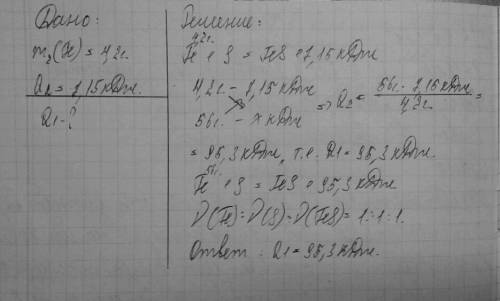 Дано:
m₂(Fe) = 4,2г.
Q₂ = 7,15кДж.
Q1 - ?
Решение:
4,2г.
Fe + S = FeS + 7,15кДж
4,2г. - 7,15кДж
56г. - x кДж
=> Q2 = 56г. · 7,15кДж / 4,2г. =
= 95,3кДж, т.е. Q1 = 95,3кДж.
56г.
Fe + S = FeS + 95,3кДж
ν(Fe):ν(S):ν(FeS) = 1:1:1.
Ответ: Q1 = 95,3кДж.